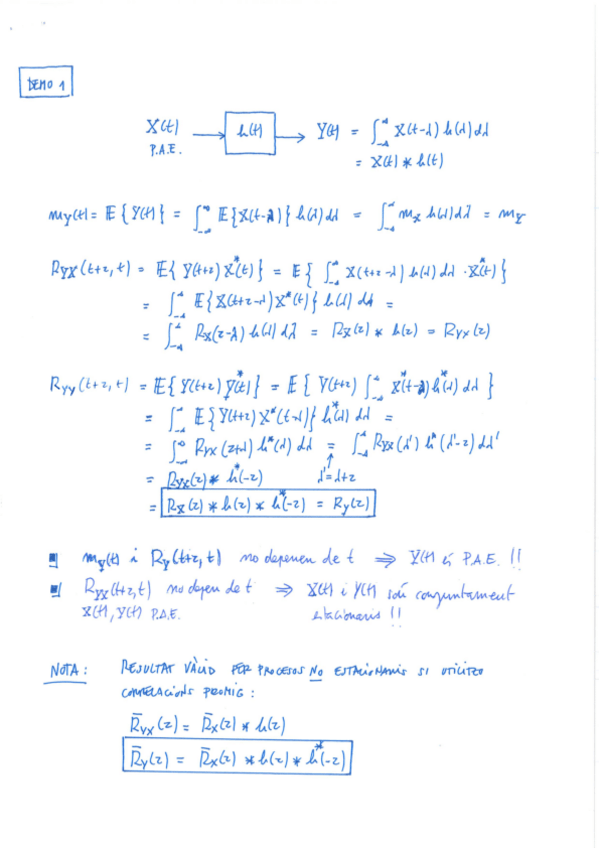 DEMO 1
X(t) → h(t) → Y(t) = ∫_{-∞}^{∞} X(t-λ) h(λ) dλ
P.A.E.
= X(t) * h(t)
m_Y(t) = E{Y(t)} = ∫_{-∞}^{∞} E{X(t-λ)} h(λ) dλ = ∫_{-∞}^{∞} m_X h(λ) dλ = m_Y
R_YX(t+z, t) = E{Y(t+z) X*(t)} = E{∫_{-∞}^{∞} X(t+z-λ) h(λ) dλ · X*(t)}
= ∫_{-∞}^{∞} E{X(t+z-λ) X*(t)} h(λ) dλ =
= ∫_{-∞}^{∞} R_X(z-λ) h(λ) dλ = R_X(z) * h(z) = R_YX(z)
R_YY(t+z, t) = E{Y(t+z) Y*(t)} = E{Y(t+z) ∫_{-∞}^{∞} X*(t-λ) h*(λ) dλ}
= ∫_{-∞}^{∞} E{Y(t+z) X*(t-λ)} h*(λ) dλ =
= ∫_{-∞}^{∞} R_YX(z+λ) h*(λ) dλ = ∫_{-∞}^{∞} R_YX(λ') h*(λ'-z) dλ'
= R_YX(z) * h*(-z) λ'=λ+z
= R_X(z) * h(z) * h*(-z) = R_Y(z)
m_Y(t) i R_Y(t+z, t) no depenen de t ⇒ Y(t) és P.A.E. !!
R_YX(t+z, t) no depen de t ⇒ X(t) i Y(t) són conjuntament
X(t), Y(t) P.A.E. estacionaris !!
NOTA: RESULTAT VÀLID PER PROCESOS NO ESTACIONARIS SI UTILITZO
CORRELACIONS PROMIG:
R̄_YX(z) = R̄_X(z) * h(z)
R̄_Y(z) = R̄_X(z) * h(z) * h*(-z)